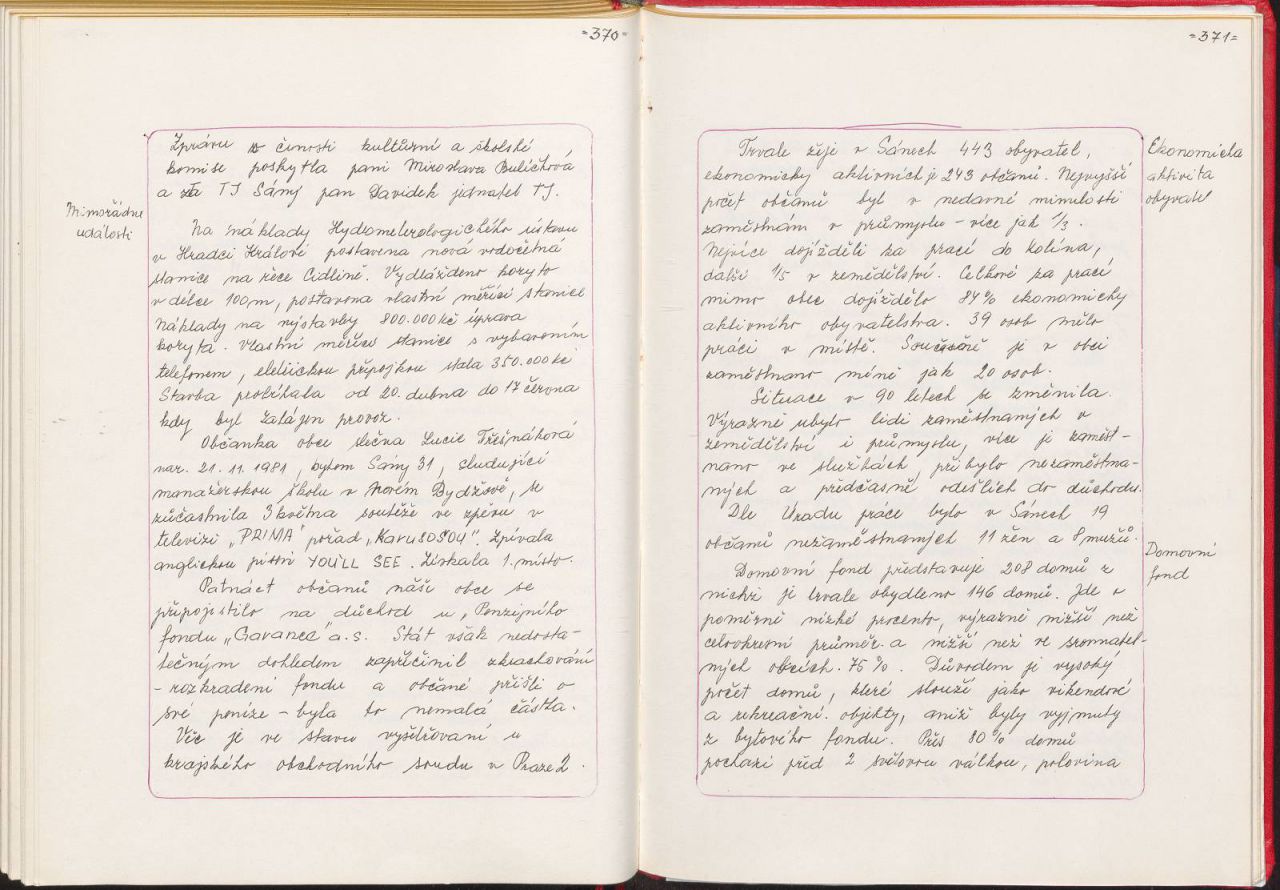 =370=
Zprávu o činosti kulturní a školské
komise poskytla paní Miroslava Bulíčková
a za TJ Sány pan Davídek jednatel TJ.
Mimořádné
události
Na náklady Hydometerologického ústavu
v Hradci Králové postavena nová vodočetná
stanice na řece Cidlině. Vydlážděno koryto
v délce 100 m, postavena vlastní měřící stanice
Náklady na výstavby 800.000 kč úprava
koryta. Vlastní měřící stanice s vybavením
telefonem, eletrickou přípojkou stála 350.000 kč
Stavba probíhala od 20. dubna do 17 června
kdy byl zahájen provoz.
Občanka obce slečna Lucie Třešňáková
nar. 21. 11. 1981, bytem Sány 31, studující
manažerskou školu v Novém Bydžově, se
zůčastnila 3 května soutěže ve zpěvu v
televizi „PRIMA" pořad „Karusoshow". Zpívala
anglickou píseň YOU'LL SEE. Získala 1. místo.
Patnáct občanů naší obce se
připojistilo na důchod u „Penzijního
fondu „Garance" a.s. Stát však nedosta-
tečným dohledem zapříčinil zkrachování
- rozkradení fondu a občané přišli o
své peníze - byla to nemalá částka.
Věc je ve stavu vyšetřování u
krajského obchodního soudu v Praze 2.
=371=
Trvale žije v Sánech 443 obyvatel,
ekonomicky aktivních je 243 občanů. Nejvyšší
počet občanů byl v nedávné minulosti
zaměstnán v průmyslu - více jak 1/3.
Nejvíce dojížděli za prací do Kolína,
další 1/5 v zemědělství. Celkově za prací
mimo obec dojíždělo 84% ekonomicky
aktivního obyvatelstva. 39 osob mělo
práci v místě. Současně je v obci
zaměstnáno méně jak 20 osob.
Situace v 90 letech se změnila.
Výrazně ubylo lidí zaměstnaných v
zemědělství i průmyslu, více je zaměst-
náno ve službách, přibylo nezaměstna-
ných a předčasně odešlých do důchodu.
Dle Úřadu práce bylo v Sánech 19
občanů nezaměstnaných 11 žen a 8 mužů.
Domovní fond představuje 208 domů z
nichž je trvale obydleno 146 domů. Jde o
poměrně nízké procento, výrazně nižší než
celookresní průměr a nižší než ve srovnatel-
ných obcích. 75%. Důvodem je vysoký
počet domů, které slouží jako víkendové
a rekreační objekty, aniž byly vyjmuty
z bytového fondu. Přes 80% domů
pochází před 2 světovou válkou, polovina
Ekonomická
aktivita
obyvatel
Domovní
fond